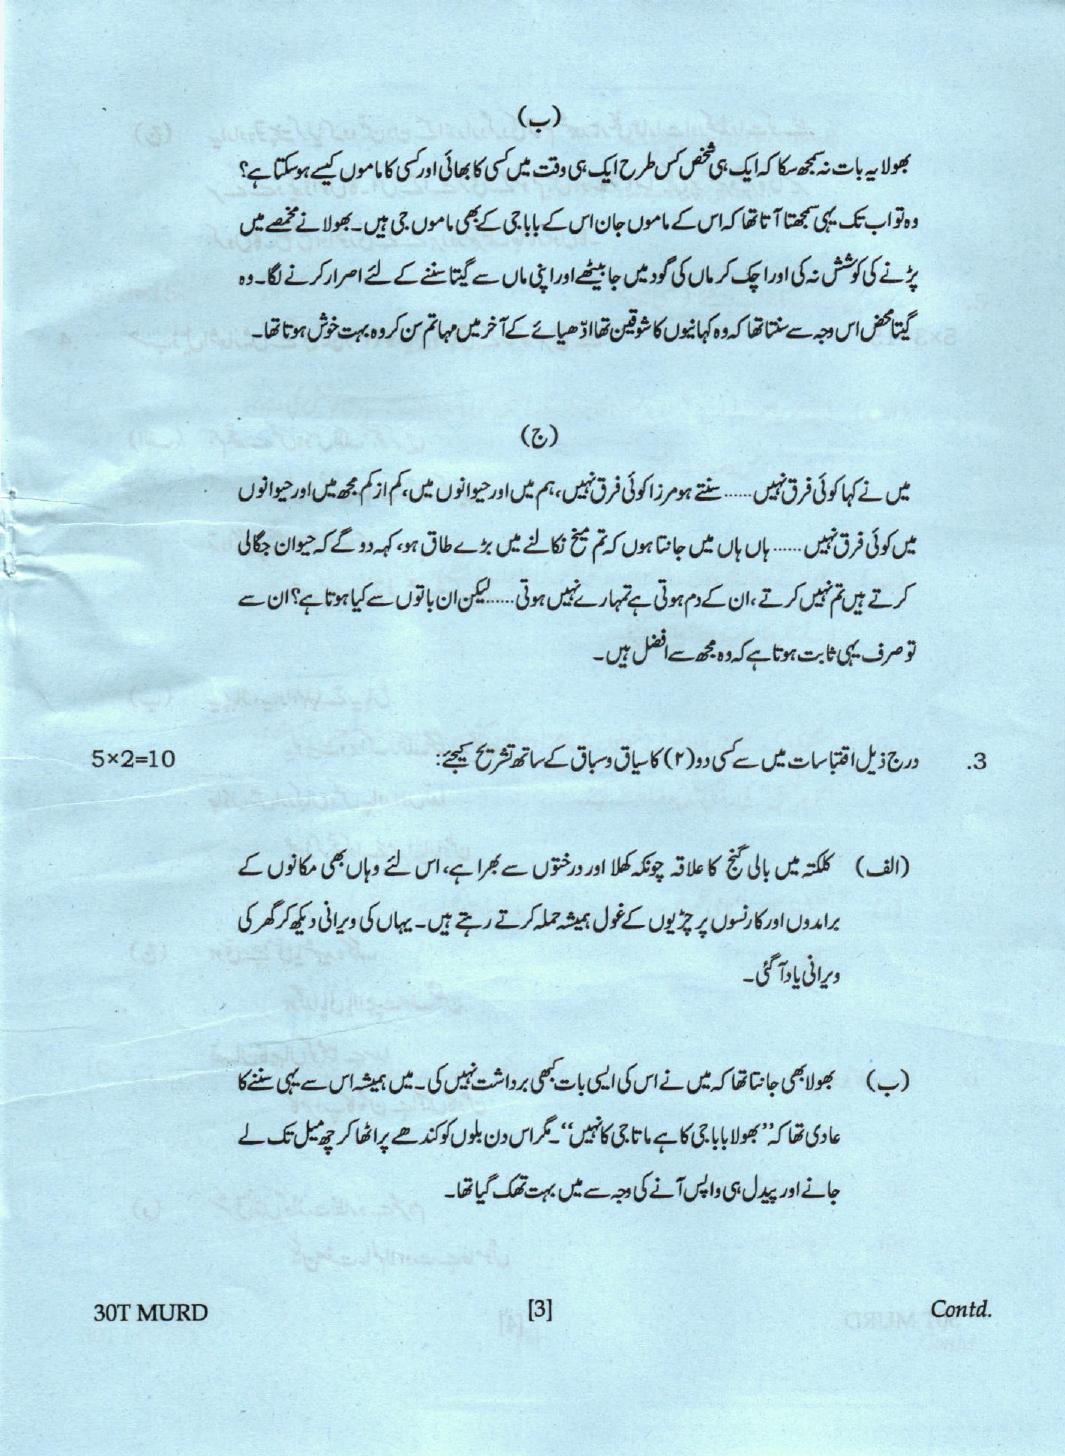 (ب)
بھولا یہ بات نہ سمجھ سکا کہ ایک ہی شخص کس طرح ایک ہی وقت میں کسی کا بھائی اور کسی کا ماموں کیسے ہو سکتا ہے؟
وہ تو اب تک یہی سمجھتا آتا تھا کہ اس کے ماموں جان اس کے بابا جی کے بھی ماموں جی ہیں۔ بھولا نے مخمصے میں
پڑنے کی کوشش نہ کی اور اچک کر ماں کی گود میں جا بیٹھے اور اپنی ماں سے گیتا سننے کے لئے اصرار کرنے لگا۔ وہ
گیتا محض اس وجہ سے سنتا تھا کہ وہ کہانیوں کا شوقین تھا ادّھیائے کے آخر میں مہاتم سن کر وہ بہت خوش ہوتا تھا۔
(ج)
میں نے کہا کوئی فرق نہیں ...... سنتے ہو مرزا کوئی فرق نہیں، ہم میں اور حیوانوں میں، کم از کم مجھ میں اور حیوانوں
میں کوئی فرق نہیں ...... ہاں ہاں میں جانتا ہوں کہ تم میخ نکالنے میں بڑے طاق ہو، کہہ دو گے کہ حیوان جگالی
کرتے ہیں تم نہیں کرتے، ان کے دم ہوتی ہے تمہارے نہیں ہوتی ...... لیکن ان باتوں سے کیا ہوتا ہے؟ ان سے
تو صرف یہی ثابت ہوتا ہے کہ وہ مجھ سے افضل ہیں۔
3. درج ذیل اقتباسات میں سے کسی دو (۲) کا سیاق و سباق کے ساتھ تشریح کیجئے: 5×2=10
(الف) کلکتہ میں بالی گنج کا علاقہ چونکہ کھلا اور درختوں سے بھرا ہے، اس لئے وہاں بھی مکانوں کے
برامدوں اور کارنسوں پر چڑیوں کے غول ہمیشہ حملہ کرتے رہتے ہیں۔ یہاں کی ویرانی دیکھ کر گھر کی
ویرانی یاد آگئی۔
(ب) بھولا بھی جانتا تھا کہ میں نے اس کی ایسی بات کبھی برداشت نہیں کی۔ میں ہمیشہ اس سے یہی سننے کا
عادی تھا کہ ”بھولا بابا جی کا ہے ماتا جی کا نہیں“۔ مگر اس دن ہلوں کو کندھے پر اٹھا کر چھ میل تک لے
جانے اور پیدل ہی واپس آنے کی وجہ سے میں بہت تھک گیا تھا۔
30T MURD [3] Contd.